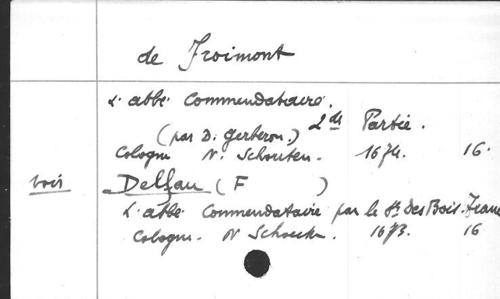 de Froimont
L'abbé Commendataire.
2de Partie.
(par D. Gerberon.)
Cologne N. Schouten. 1674. 16.
voir Delfau (F )
L'abbé Commendataire par le Sr des Bois-Franc
Cologne. N Schouten. 1673. 16